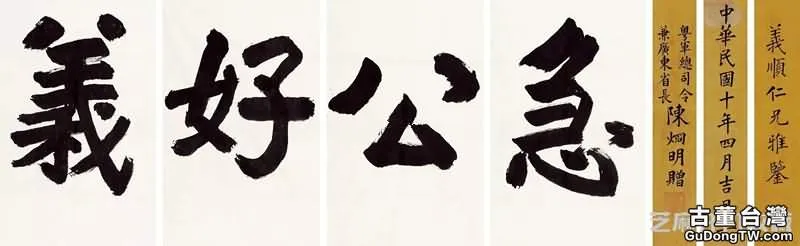 義順仁兄雅鑒
中華民國十年四月吉
粵軍總司令
兼廣東省長
陳烱明贈
急公好義
古董台灣
GuDongTW.com